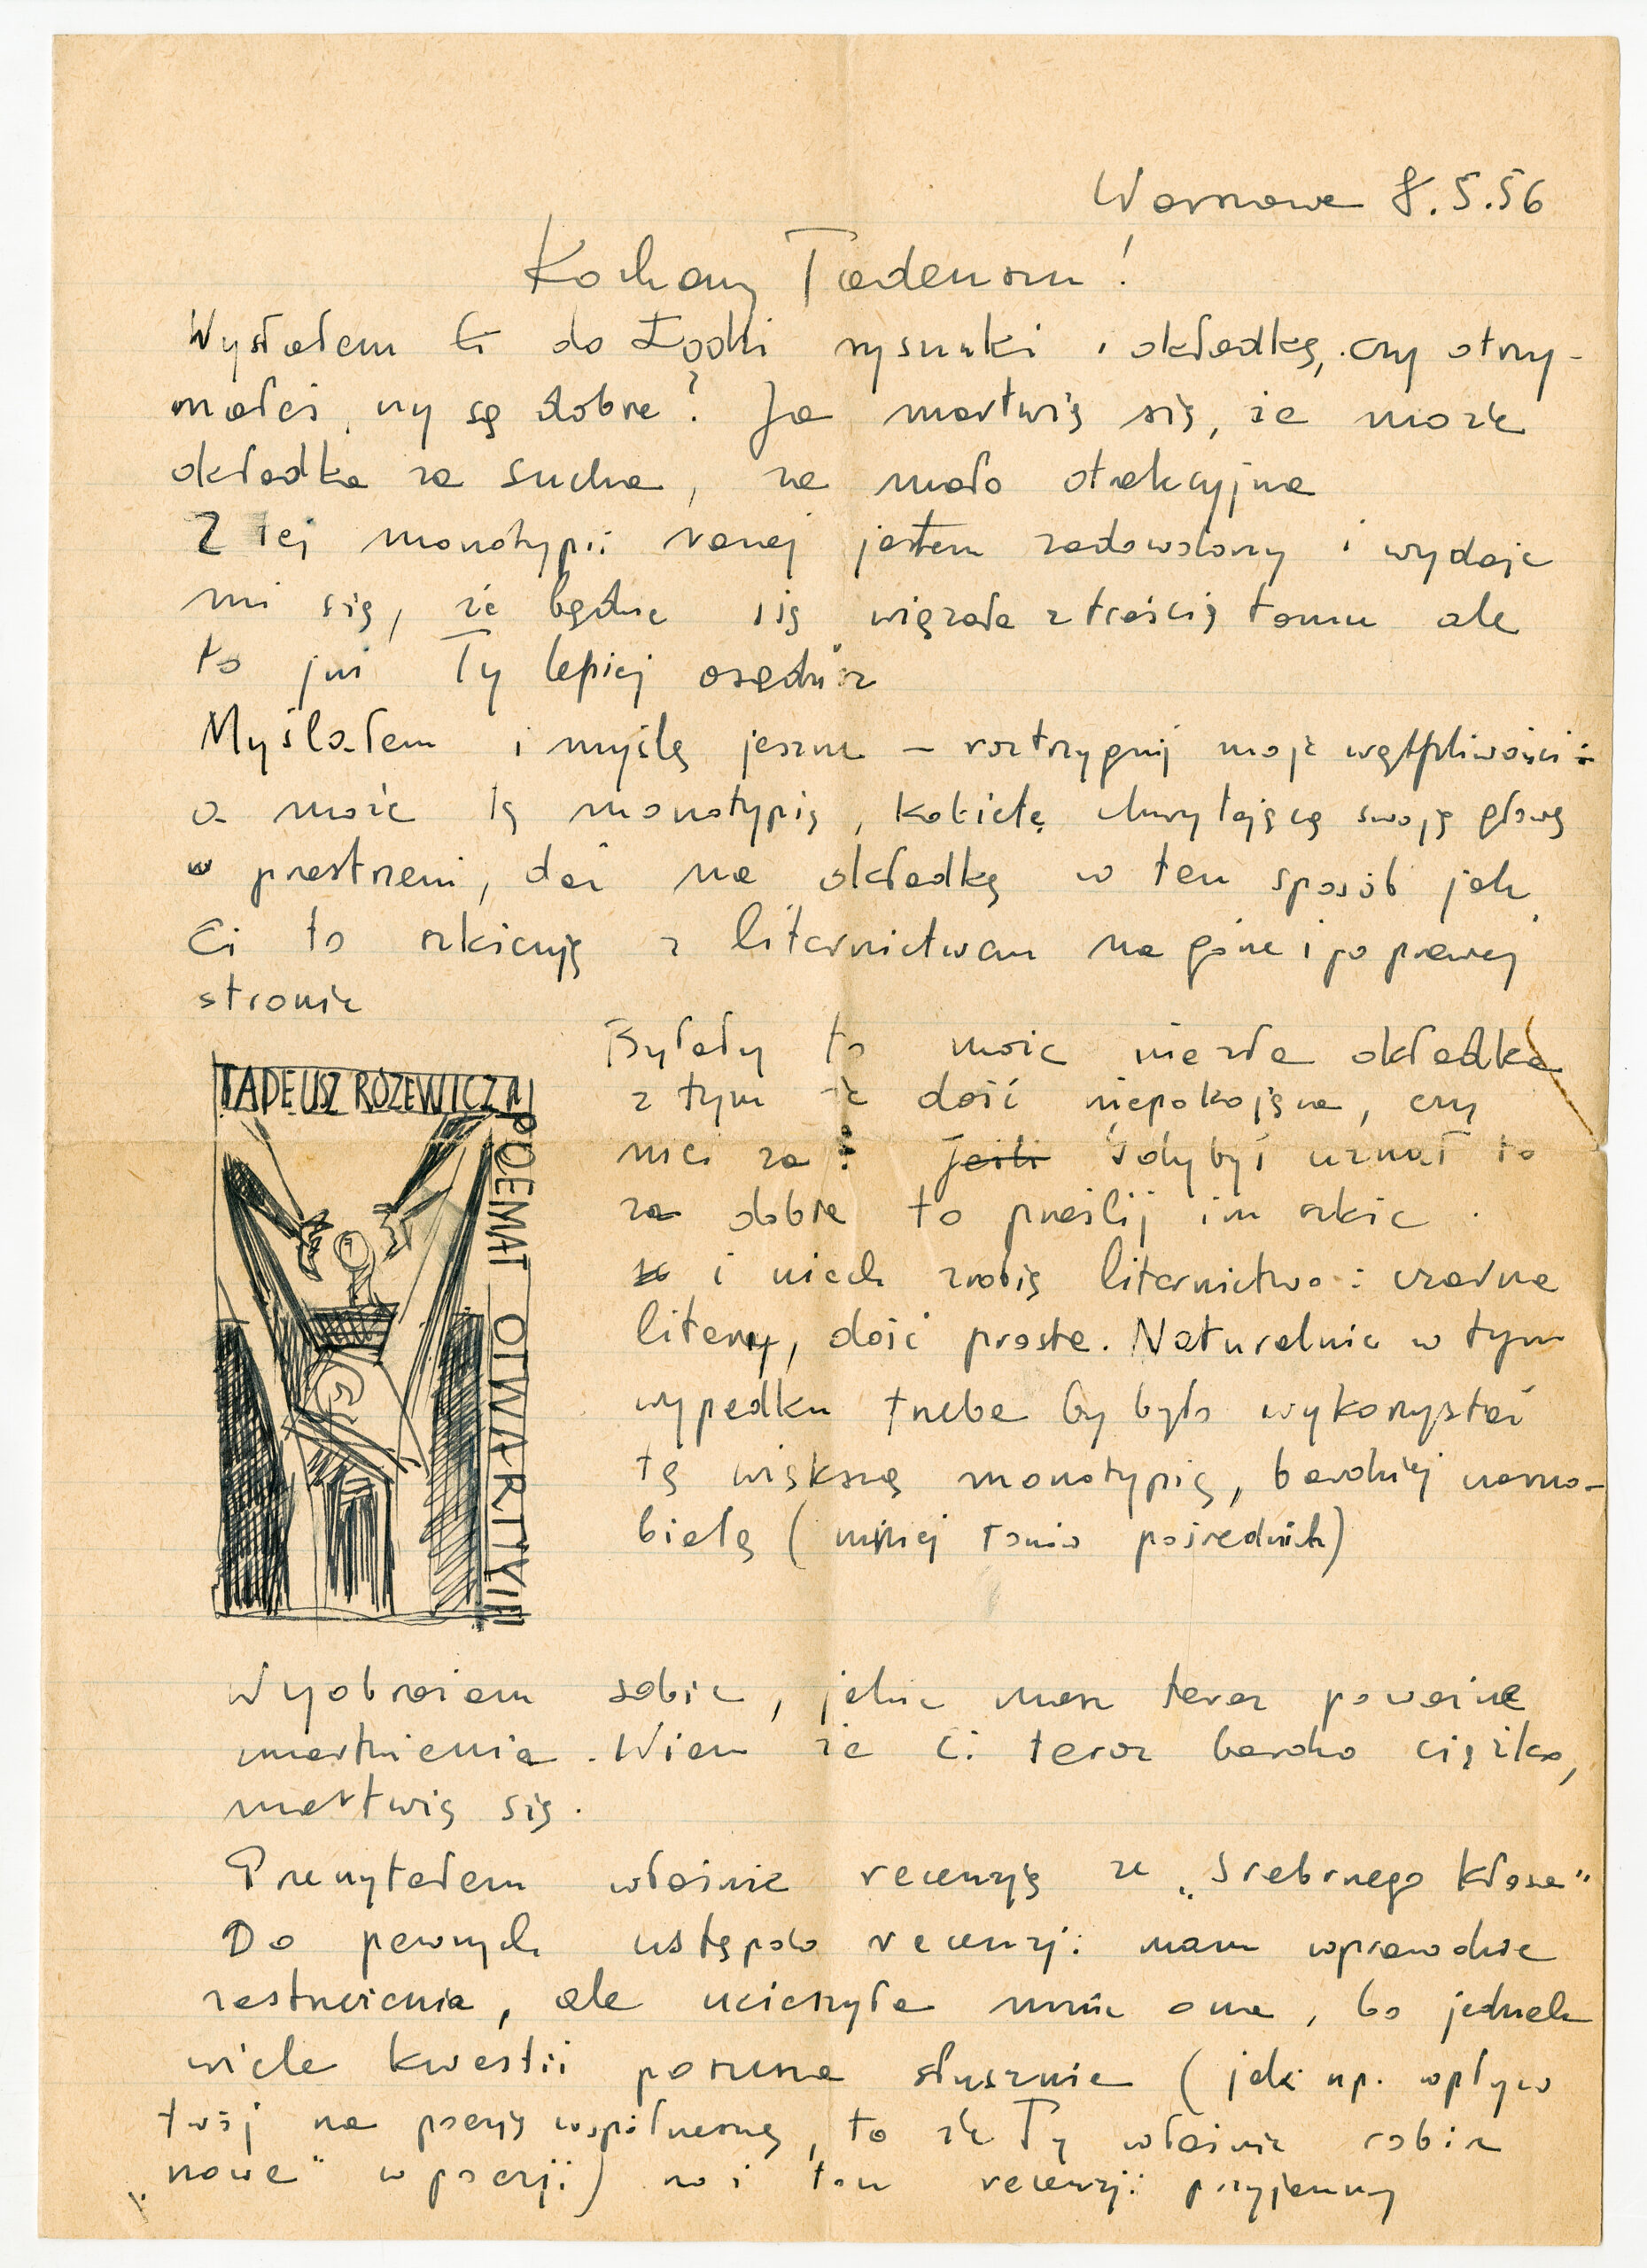 Warszawa 8.5.56
Kochany Tadeuszu!
Wysłałem Ci do Łodzi rysunki i okładkę, czy otrzy-
małeś, czy są dobre? Ja martwię się, że może
okładka za sucha, za mało atrakcyjna
Z tej monotypii samej jestem zadowolony i wydaje
mi się, że będzie się wiązała z treścią tomu ale
to już Ty lepiej osądzisz
Myślałem i myślę jeszcze – roztrzygnij moje wątpliwości:
a może tę monotypię, kobietę chwytającą swoją głowę
w przestrzeni, dać na okładkę w ten sposób jak
Ci to szkicuję z liternictwem na górze i po prawej
stronie
TADEUSZ RÓZEWICZ
POEMAT OTWARTY
Byłaby to może niezła okładka
z tym że dość niepokojąca, czy
nie za? Jeśli Gdybyś uznał to
za dobre to prześlij im szkic.
i niech zrobią liternictwo: czarne
litery, dość proste. Naturalnie w tym
wypadku trzeba by było wykorzystać
tę większą monotypię, bardziej czarno-
białą (mniej tonów pośrednich)
Wyobrażam sobie, jakie masz teraz poważne
zmartwienia. Wiem że Ci teraz bardzo ciężko,
martwię się.
Przeczytałem właśnie recenzję ze „Srebrnego kłosa"
Do pewnych ustępów recenzji mam wprawdzie
zastrzeżenia, ale ucieszyła mnie ona, bo jednak
wiele kwestii porusza słusznie (jak np. wpływ
twój na poezję współczesną, to że Ty właśnie robisz
„nowe" w poezji) no i ton recenzji przyjemny